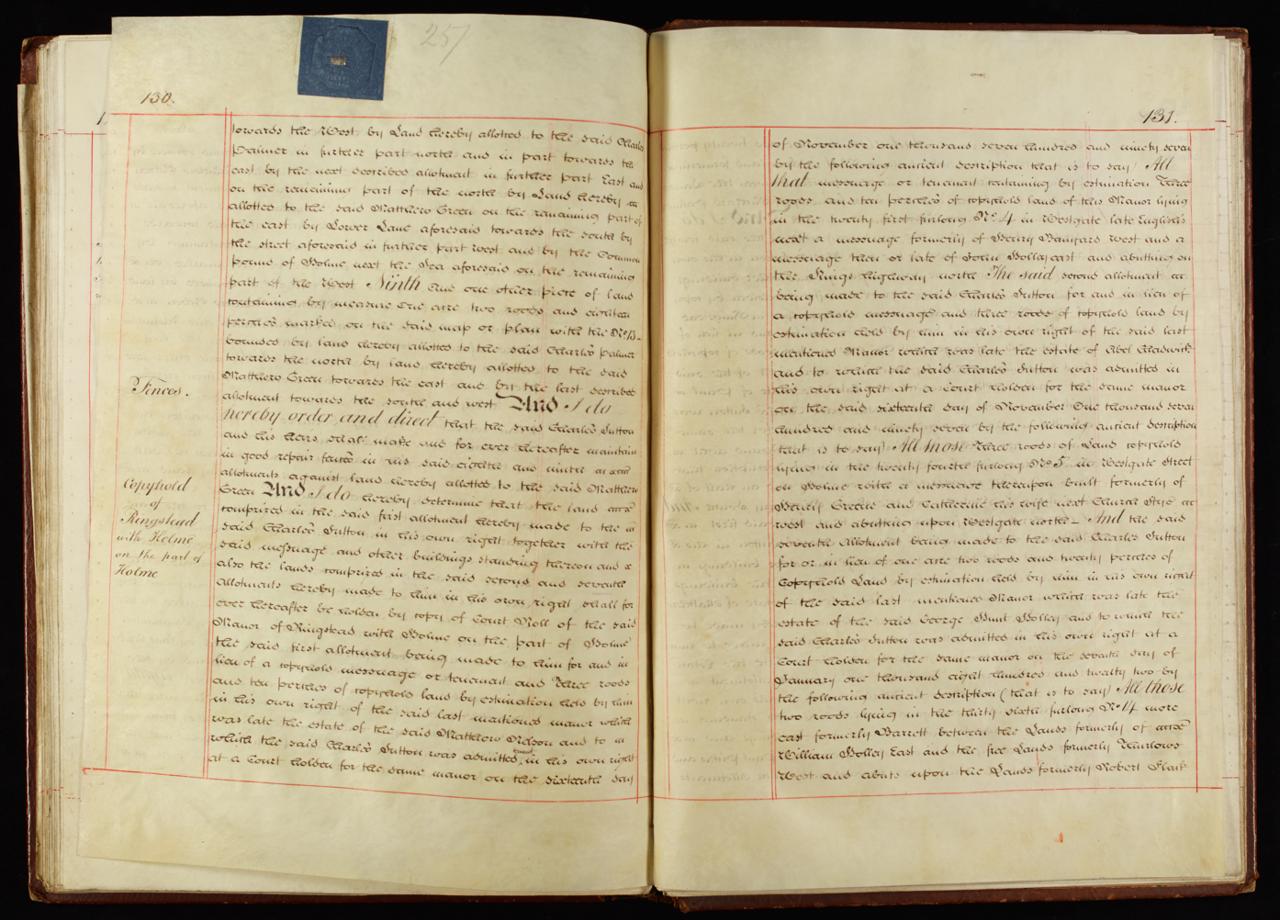 257
130.
towards the West by Land hereby allotted to the said Charles
Palmer in further part north and in part towards the
east by the next described allotment in further part East and
on the remaining part of the north by Land hereby
allotted to the said Matthew Green on the remaining part of
the east by Lower Lane aforesaid towards the south by
the street aforesaid in further part west and by the Common
pound of Holme next the Sea aforesaid on the remaining
part of the West Ninth And one other piece of land
containing by measure One acre two roods and eighteen
perches marked on the said map or plan with the No.
bounded by land hereby allotted to the said Charles Palmer
towards the north by land hereby allotted to the said
Matthew Green towards the east and by the last described
allotment towards the south and west And I do
hereby order and direct that the said Charles Sutton
and his heirs shall make and for ever hereafter maintain
in good repair fences in his said eighth and ninth
allotments against land hereby allotted to the said Matthew
Green And I do hereby determine that the land
comprized in the said first allotment hereby made to the
said Charles Sutton in his own right together with the
said messuage and other buildings standing thereon and
also the lands comprized in the said second and seventh
allotments hereby made to him in his own right shall for
ever hereafter be holden by copy of Court Roll of the said
Manor of Ringstead with Holme on the part of Holme
the said first allotment being made to him for and in
lieu of a copyhold messuage or tenement and Three roods
and ten perches of copyhold land by estimation held by him
in his own right of the said last mentioned manor which
was late the estate of the said Matthew Nelson and to
which the said Charles Sutton was admitted in his own right
at a Court holden for the same manor on the sixteenth day
Fences.
Copyhold
of
Ringstead
with Holme
on the part of
Holme
131.
of November one thousand seven hundred and ninety seven
by the following ancient description that is to say All
that messuage or tenement containing by estimation Three
roods and ten perches of copyhold land of this Manor lying
in the twenty first furlong No. 4 in Westgate late English's
next a messuage formerly of Henry Banyard West and a
messuage then or late of John Holley east and abutting on
the Kings highway north The said second allotment
being made to the said Charles Sutton for and in lieu of
a copyhold messuage and three roods of copyhold land by
estimation held by him in his own right of the said last
mentioned Manor which was late the estate of Abel Chadwick
and to which the said Charles Sutton was admitted in
his own right at a Court holden for the same manor
on the said sixteenth day of November One thousand seven
hundred and ninety seven by the following ancient description
that is to say) All those Three roods of Land copyhold
lying in the twenty fourth furlong No. 5 in Westgate Street
in Holme with a messuage thereupon built formerly of
Henry Greene and Catherine his wife next Church Stye
west and abutting upon Westgate north And the said
seventh allotment being made to the said Charles Sutton
for or in lieu of one acre two roods and twenty perches of
Copyhold Land by estimation held by him in his own right
of the said last mentioned Manor which was late the
estate of the said George Hunt Holley and to which the
said Charles Sutton was admitted in his own right at a
Court holden for the same manor on the seventh day of
January one thousand eight hundred and twenty two by
the following ancient description (that is to say) All those
two roods lying in the thirty sixth furlong No. 14 more
east formerly Barrett between the Lands formerly of
William Holley East and the free Lands formerly
West and abuts upon the Lands formerly Robert